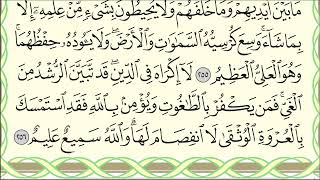 مَا بَيْنَ أَيْدِيهِمْ وَمَا خَلْفَهُمْ وَلَا يُحِيطُونَ بِشَىْءٍ مِّنْ عِلْمِهِۦٓ إِلَّا
بِمَا شَآءَ وَسِعَ كُرْسِيُّهُ ٱلسَّمَٰوَٰتِ وَٱلْأَرْضَ وَلَا يَـُٔودُهُۥ حِفْظُهُمَا
وَهُوَ ٱلْعَلِىُّ ٱلْعَظِيمُ ٢٥٥ لَآ إِكْرَاهَ فِى ٱلدِّينِ قَد تَّبَيَّنَ ٱلرُّشْدُ مِنَ
ٱلْغَىِّ فَمَن يَكْفُرْ بِٱلطَّٰغُوتِ وَيُؤْمِنۢ بِٱللَّهِ فَقَدِ ٱسْتَمْسَكَ
بِٱلْعُرْوَةِ ٱلْوُثْقَىٰ لَا ٱنفِصَامَ لَهَا وَٱللَّهُ سَمِيعٌ عَلِيمٌ ٢٥٦